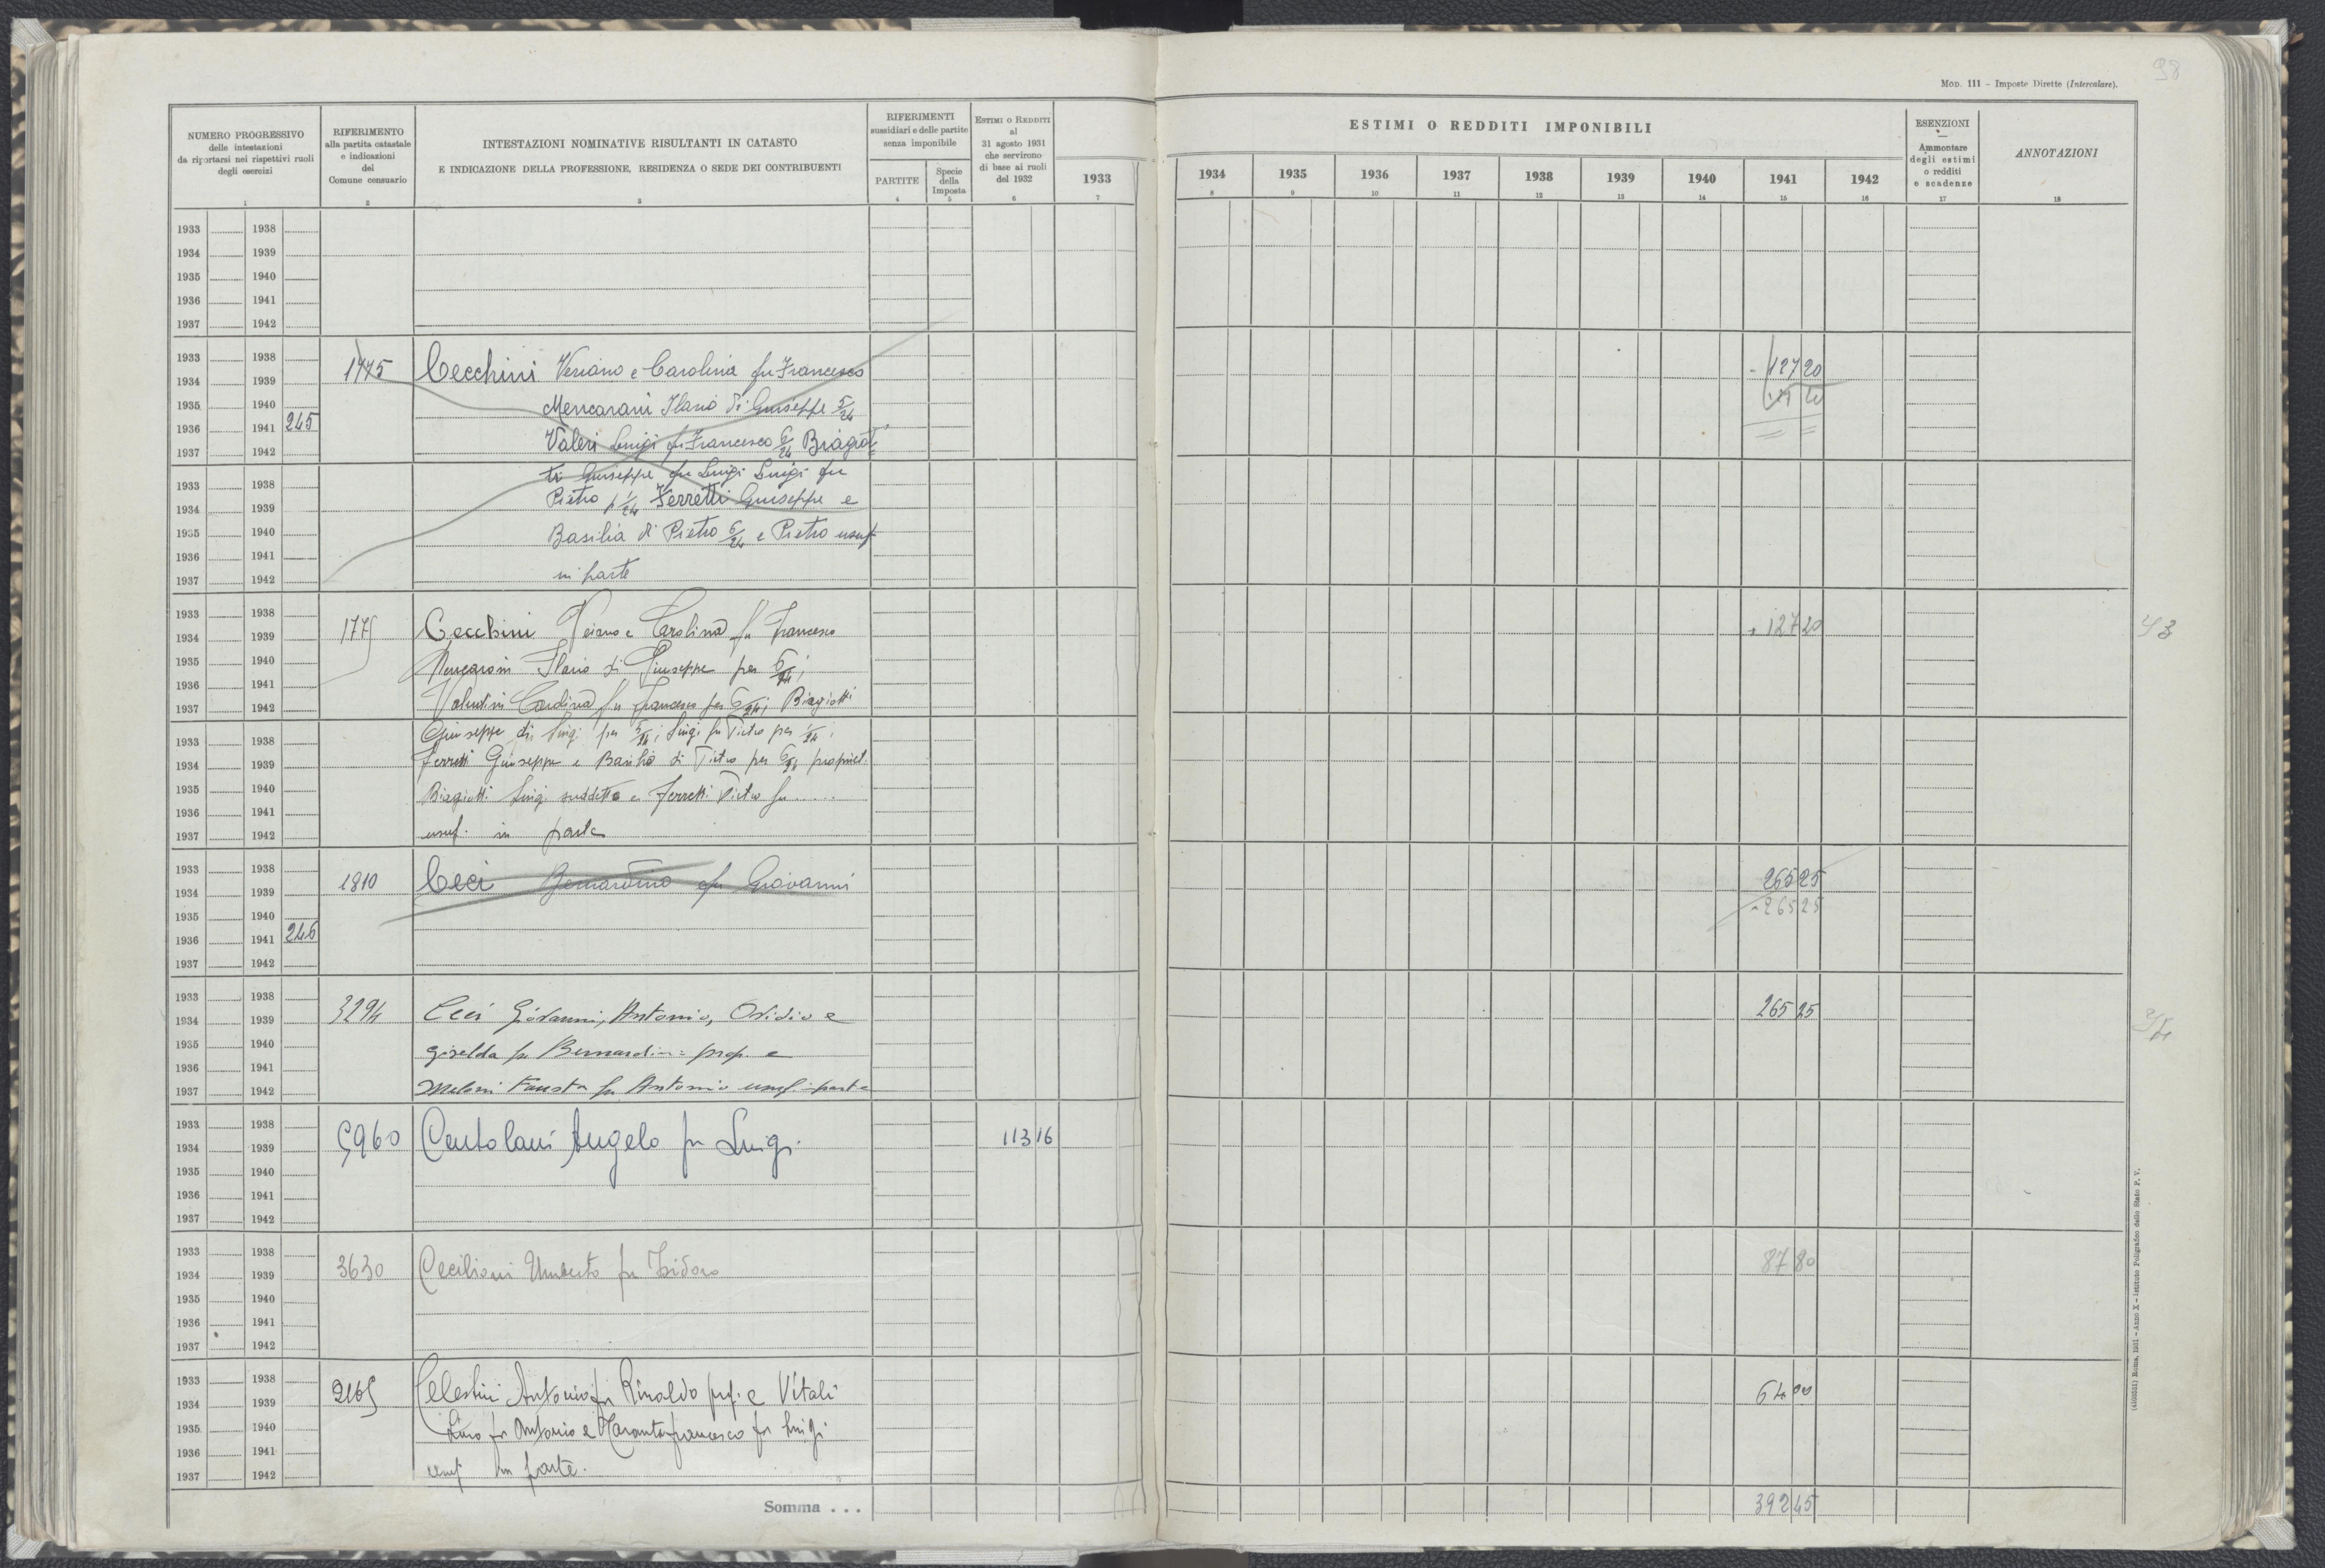 98
MOD. 111 – Imposte Dirette (Intercalare).
NUMERO PROGRESSIVO
delle intestazioni
da riportarsi nei rispettivi ruoli
degli esercizi
RIFERIMENTO
alla partita catastale
e indicazioni
del
Comune censuario
INTESTAZIONI NOMINATIVE RISULTANTI IN CATASTO
E INDICAZIONE DELLA PROFESSIONE, RESIDENZA O SEDE DEI CONTRIBUENTI
RIFERIMENTI
sussidiari e delle partite
senza imponibile
PARTITE
Specie
della
Imposta
ESTIMI O REDDITI
al
31 agosto 1931
che servirono
di base ai ruoli
del 1932
ESTIMI O REDDITI IMPONIBILI
1933 1934 1935 1936 1937 1938 1939 1940 1941 1942
ESENZIONI
—
Ammontare
degli estimi
o redditi
e scadenze
ANNOTAZIONI
1 2 3 4 5 6 7 8 9 10 11 12 13 14 15 16 17 18
1933 1938
1934 1939
1935 1940
1936 1941
1937 1942
1933 1938
1934 1939 1775 Cecchini Veriano e Carolina fu Francesco - 127 20
1935 1940 Mencarani Ilario di Giuseppe 5/24
1936 1941 245 Valeri Luigi fu Francesco 6/24 Biagiot
1937 1942
ti Giuseppe fu Luigi Luigi fu
1933 1938 Pietro p 1/24 Ferretti Giuseppe e
1934 1939 Basilia di Pietro 6/24 e Pietro usuf
1935 1940 in parte
1936 1941
1937 1942
1933 1938
1934 1939 1775 Cecchini Veriano e Carolina fu Francesco + 127 20 43
1935 1940 Mencaroni Ilario di Giuseppe per 6/24;
1936 1941 Valentini Carolina fu Francesco per 6/24; Biagiotti
1937 1942
Giuseppe di Luigi per 5/24; Luigi fu Pietro per 1/24;
1933 1938 Ferretti Giuseppe e Basilia di Pietro per 6/24 propriet.
1934 1939 Biagiotti Luigi suddetto e Ferretti Pietro fu .....
1935 1940 usuf. in parte
1936 1941
1937 1942
1933 1938
1934 1939 1810 Ceci Bernardino fu Giovanni 265 25
1935 1940 - 265 25
1936 1941 246
1937 1942
1933 1938
1934 1939 3294 Ceci Giovanni, Antonio, Ovidio e 265 25
1935 1940 Giselda fu Bernardin: prop. e
1936 1941 Meloni Fausta fu Antonio usuf. parte
1937 1942
1933 1938
1934 1939 5960 Centolani Angelo fu Luigi 113 16
1935 1940
1936 1941
1937 1942
1933 1938
1934 1939 3630 Cecilioni Umberto fu Isidoro 87 80
1935 1940
1936 1941
1937 1942
1933 1938
1934 1939 2165 Celestini Antonio fu Rinaldo prop. e Vitali 64 00
1935 1940 fu Antonio e Francesco fu Luigi
1936 1941 usuf in parte.
1937 1942
Somma . . . 392 45
(4100551) Roma, 1931 - Anno X - Istituto Poligrafico dello Stato P. V.